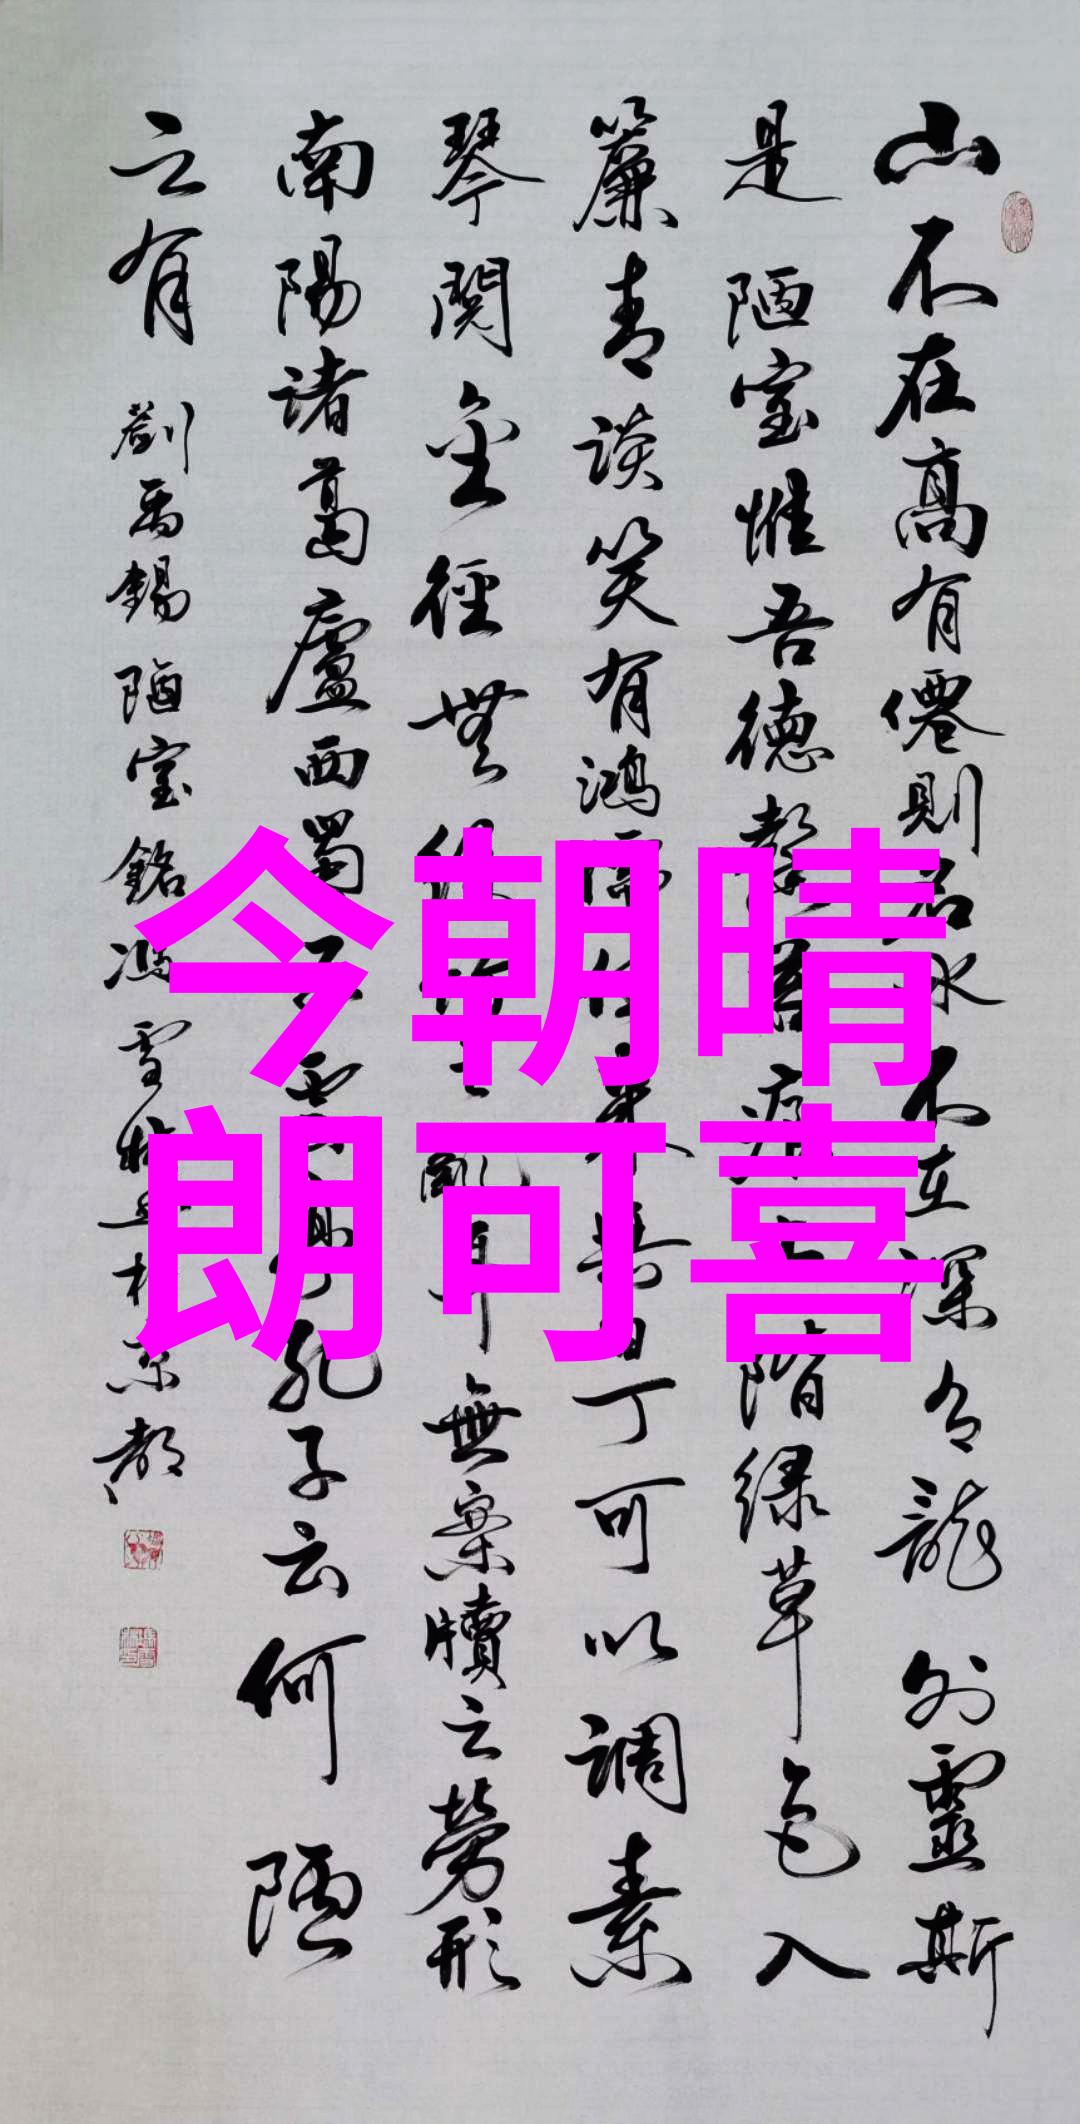 今朝晴
朗可喜
山不在高有僊則名水不在深有龍則靈斯
是陋室惟吾德馨苔痕上階绿草色入
簾青談笑有鴻儒往来無白丁可以調素
琴閱金徑無絲竹之亂耳無案牘之勞形
南陽諸葛廬西蜀子雲亭孔子云何陋
之有 劉禹錫陋室銘馮雪林書於京都